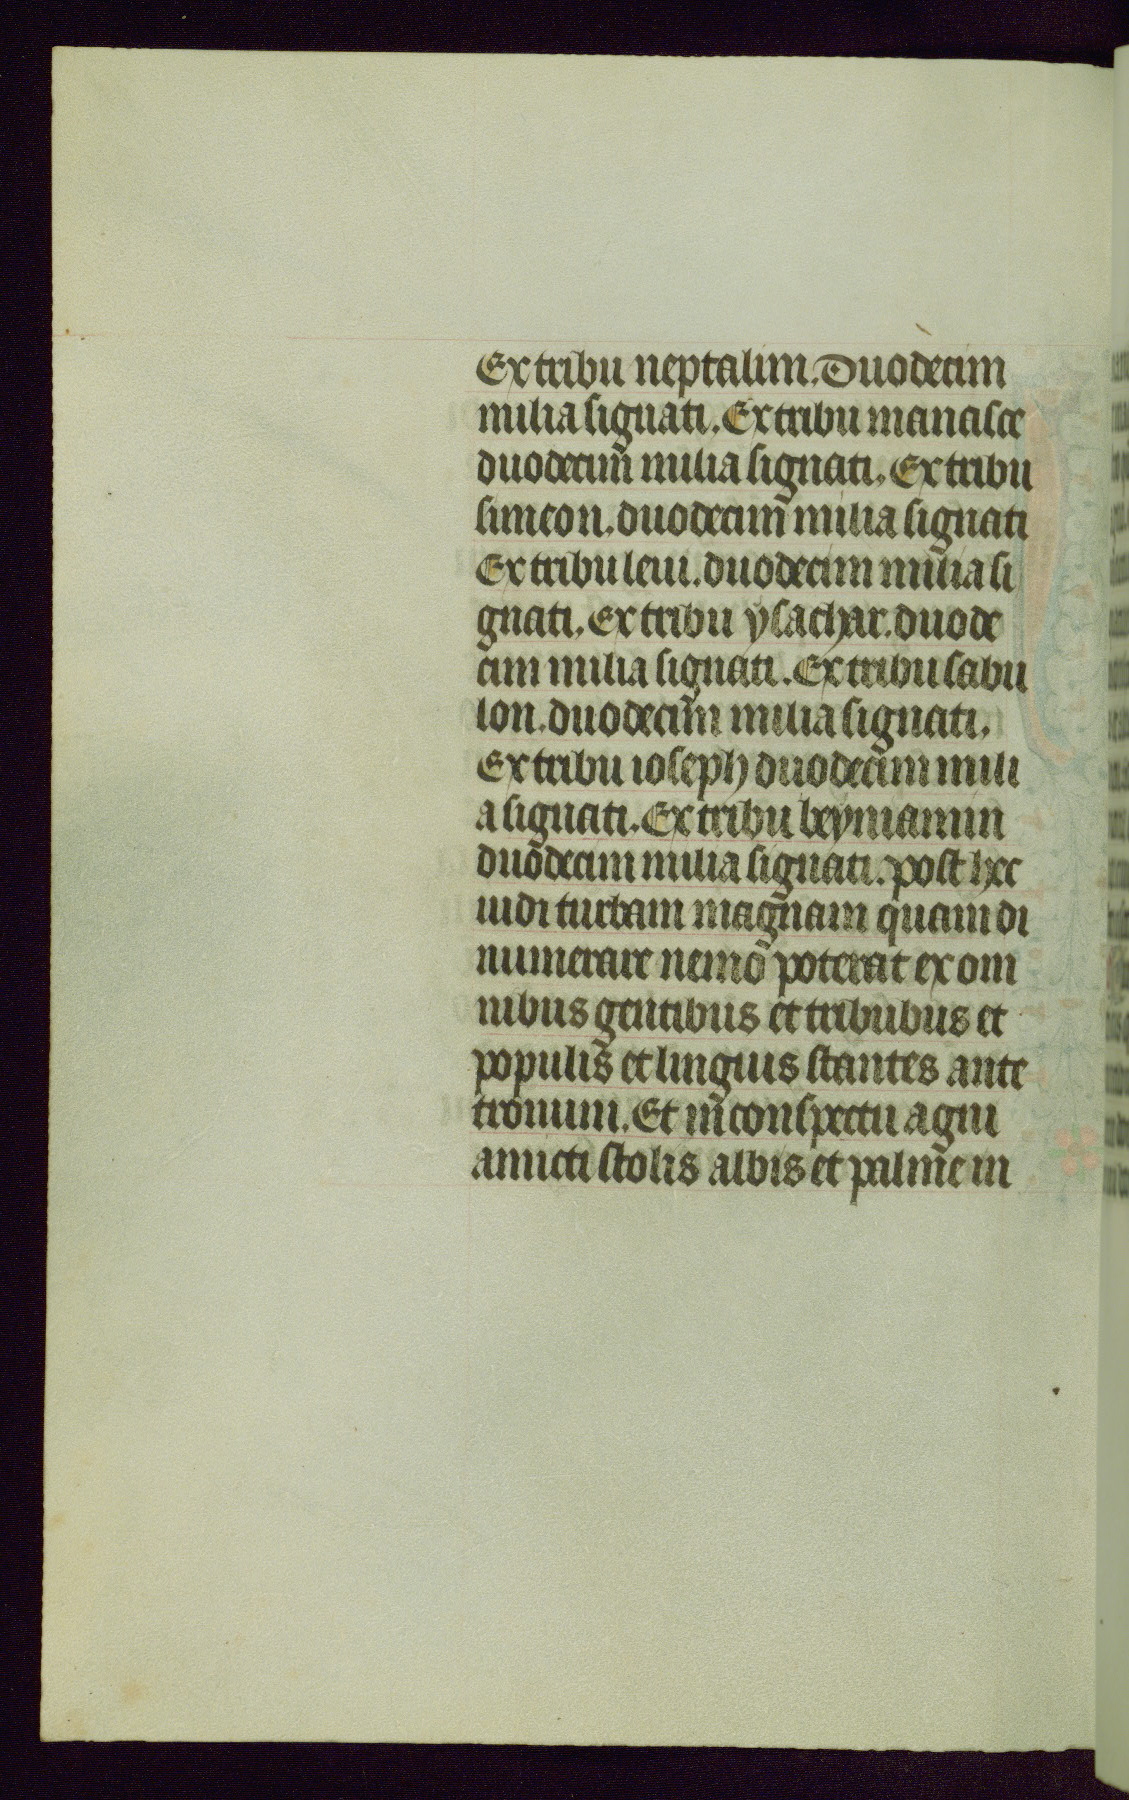 Ex tribu neptalim. Duodecim
milia signati. Ex tribu manasse
duodecim milia signati. Ex tribu
simeon. duodecim milia signati
Ex tribu leui. duodecim milia si
gnati. Ex tribu ysachar. duode
cim milia signati. Ex tribu sabu
lon. duodecim milia signati.
Ex tribu ioseph duodecim mili
a signati. Ex tribu beyniamin
duodecim milia signati. post hec
uidi turbam magnam quam di
numerare nemo poterat ex om
nibus gentibus et tribubus et
populis et linguis stantes ante
tronum. Et in conspectu agni
amicti stolis albis et palme in